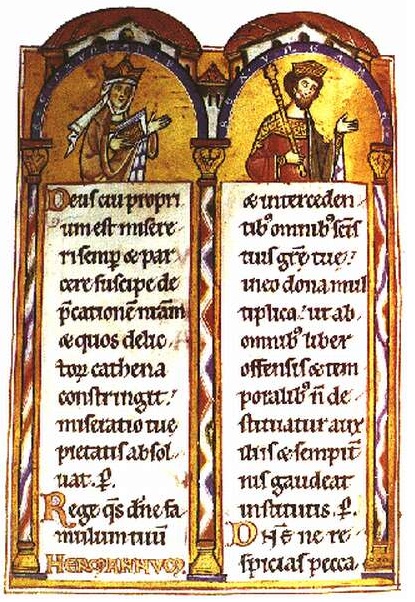 Deus cui propri
um est misere
ri semp & par
cere suscipe de
p̄cationē nr̄am
& quos delic
toꝝ cathena
constringit.
miseratio tue
pietatis absol
uat. P̲.
Rege q̄s dn̄e fa
mulum tuū
HERMANNVM
& interceden
tibꝰ omnibꝰ sc̄is
tuis gr̄e tue
in eo dona mul
tiplica. ut ab
omnibꝰ liber
offensis & tem
poralibꝰ n̄ de
stituatur aux
iliis & sempit̄
nis gaudeat
institutis. P̲.
D̄s ne re
spicias pecca